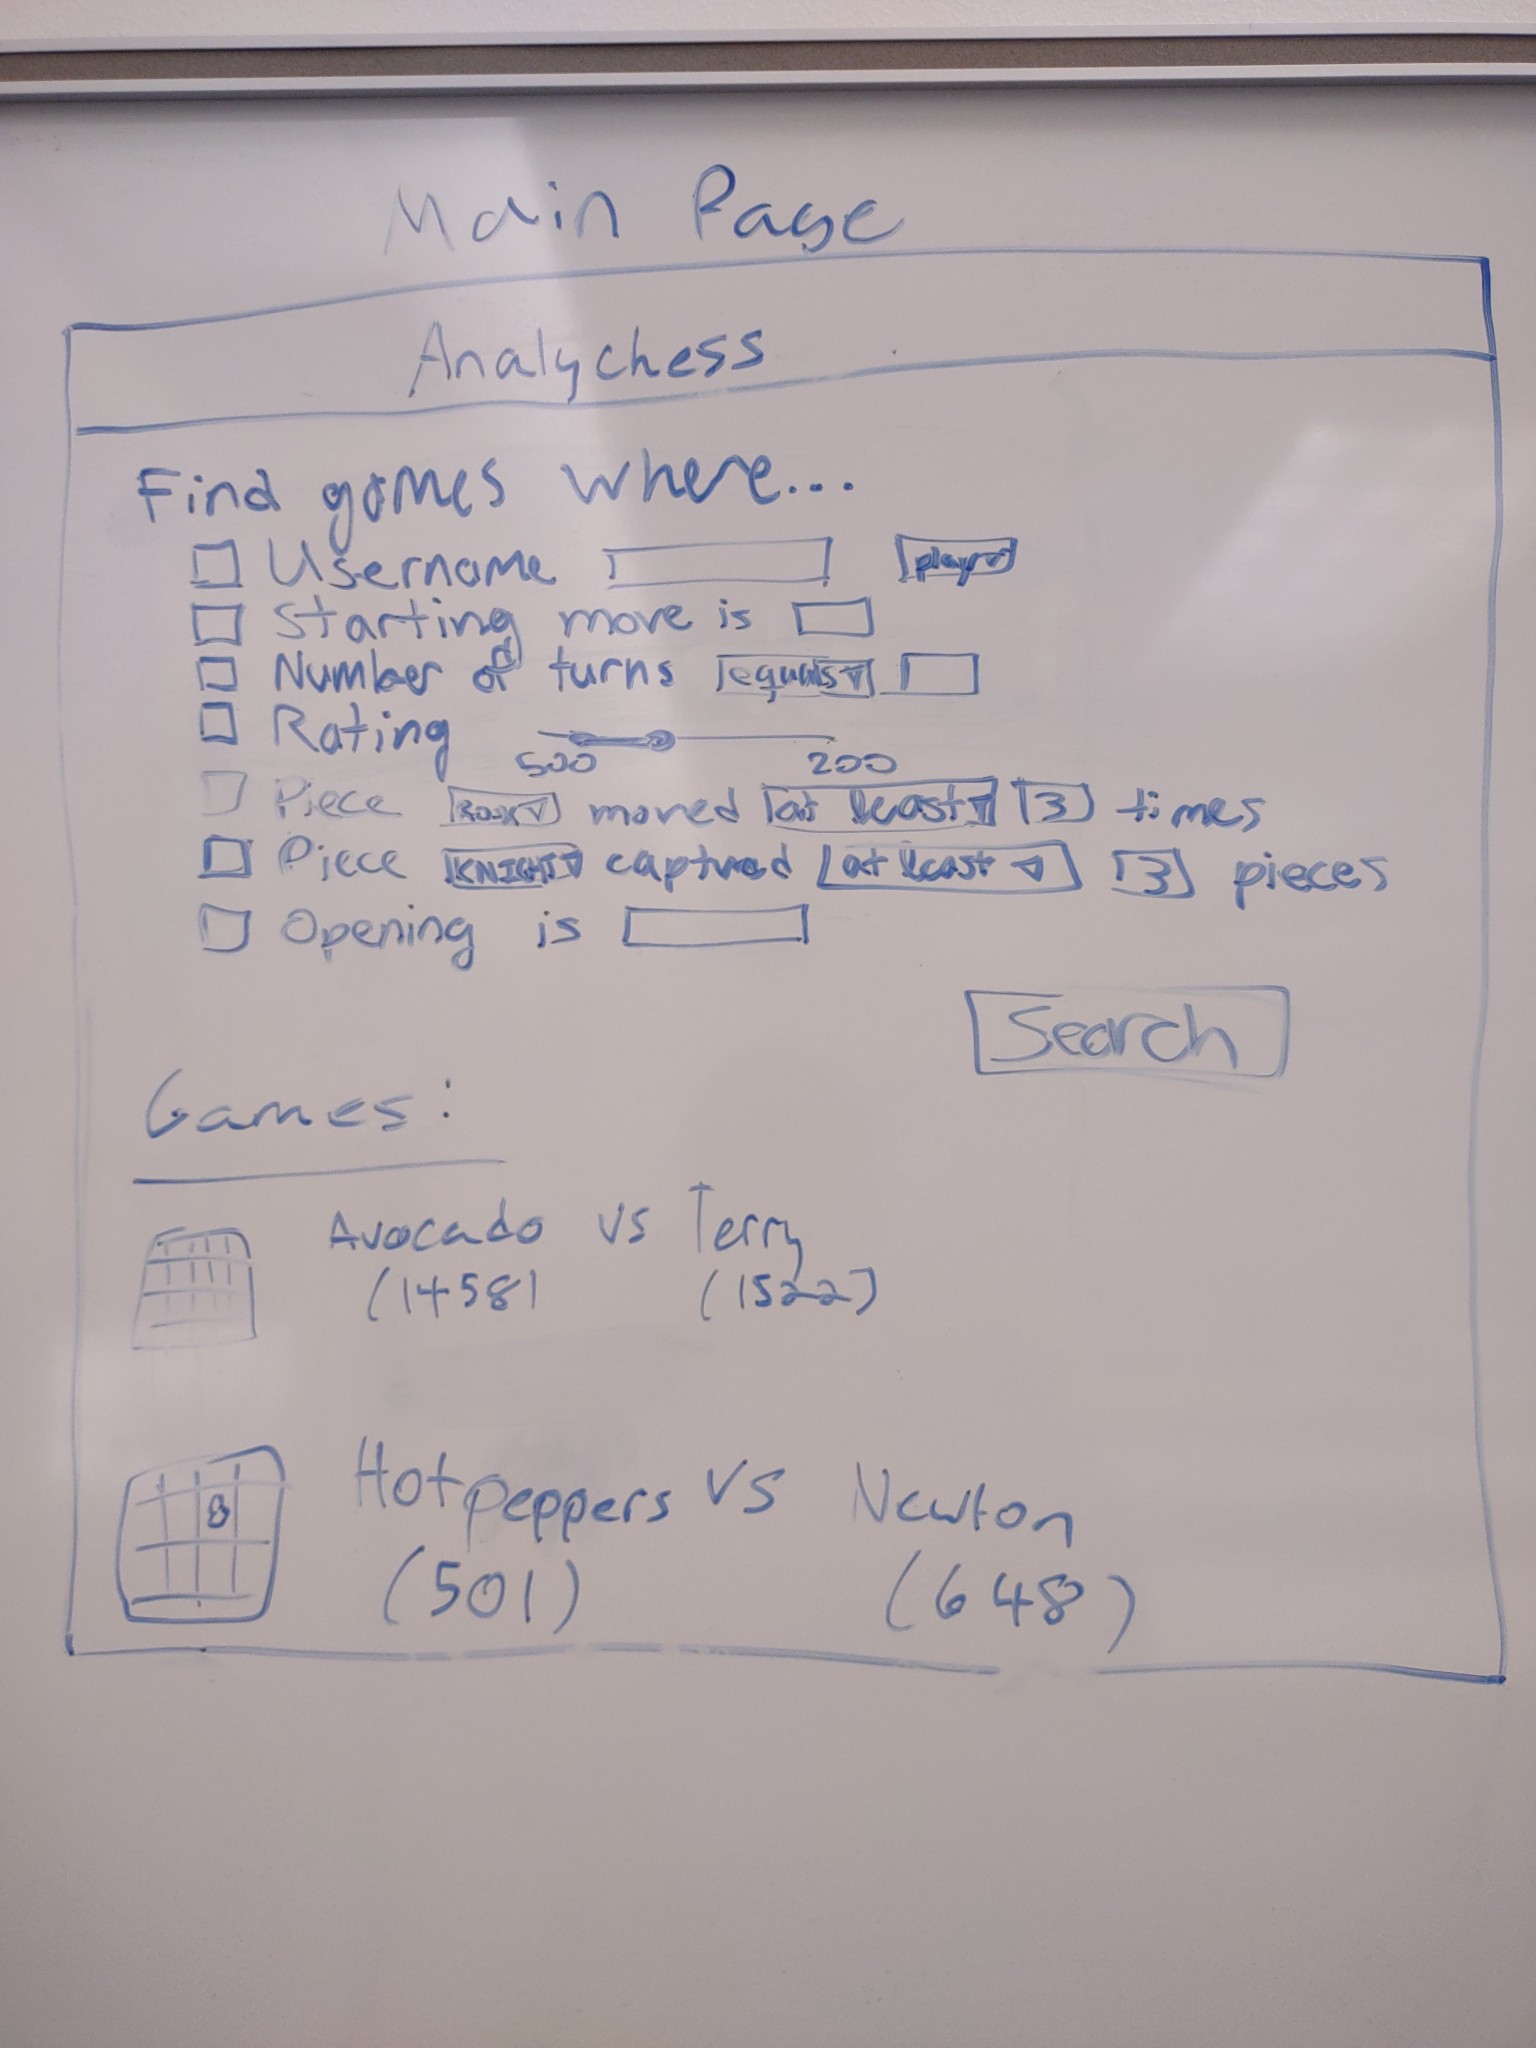 Main Page
Analychess
Find games where...
Username player
Starting move is
Number of turns equals
Rating
500 200
Piece ROOK moved at least 3 times
Piece KNIGHT captured at least 3 pieces
Opening is
Search
Games:
Avocado vs Terry
(1458) (1522)
Hotpeppers vs Newton
(501) (648)